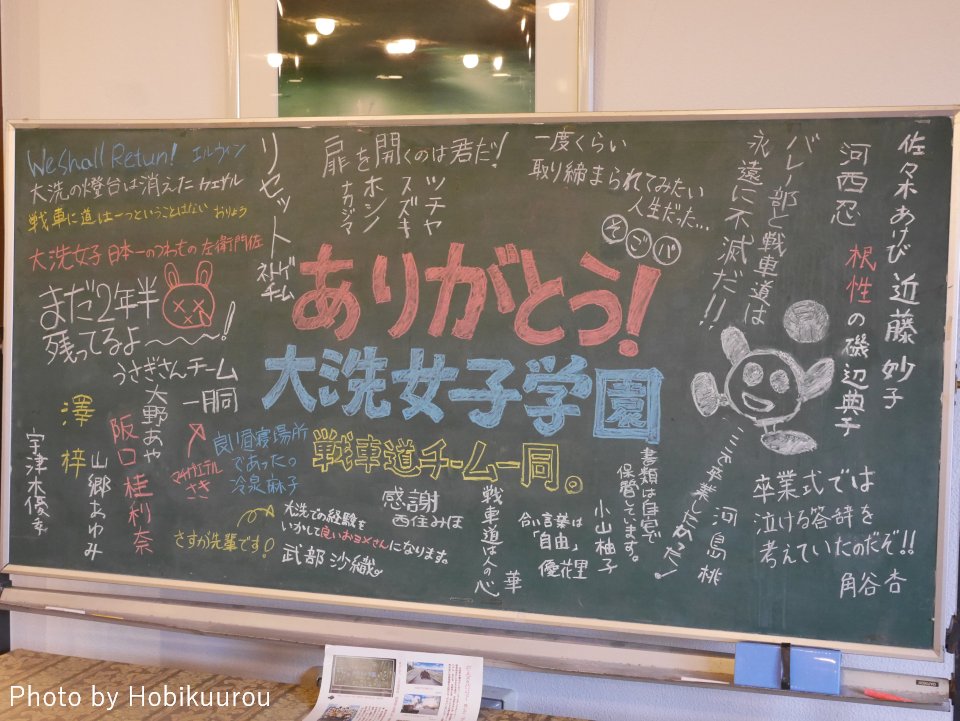 We Shall Return! エルヴィン
大洗の燈台は消えた カエサル
戦車に道は一つということはない おりょう
大洗女子 日本一のつわもの 左衛門佐
まだ2年半
残ってるよ〜〜〜!
うさぎさんチーム
一同
澤 梓
大野あや
阪口桂利奈
山郷あゆみ
宇津木優季
リセット
ネトゲチーム
扉を開くのは君だ!
ナカジマ
ホシノ
スズキ
ツチヤ
一度くらい
取り締まられてみたい
人生だった…
そ ご パ
ありがとう!
大洗女子学園
戦車道チーム一同。
良い昼寝場所
であった。
冷泉麻子
さすが先輩です!
大洗での経験を
いかして良いおヨメさんになります。
武部沙織。
感謝
西住みほ
戦車道は人の心
華
合い言葉は
「自由」
優花里
書類は自宅で
保管しています。
小山柚子
ここを卒業したかった!
河島桃
佐々木あけび
近藤妙子
河西忍
根性の磯辺典子
バレー部と戦車道は
永遠に不滅だ!!
卒業式では
泣ける答辞を
考えていたのだぞ!!
角谷杏
Photo by Hobikuurou